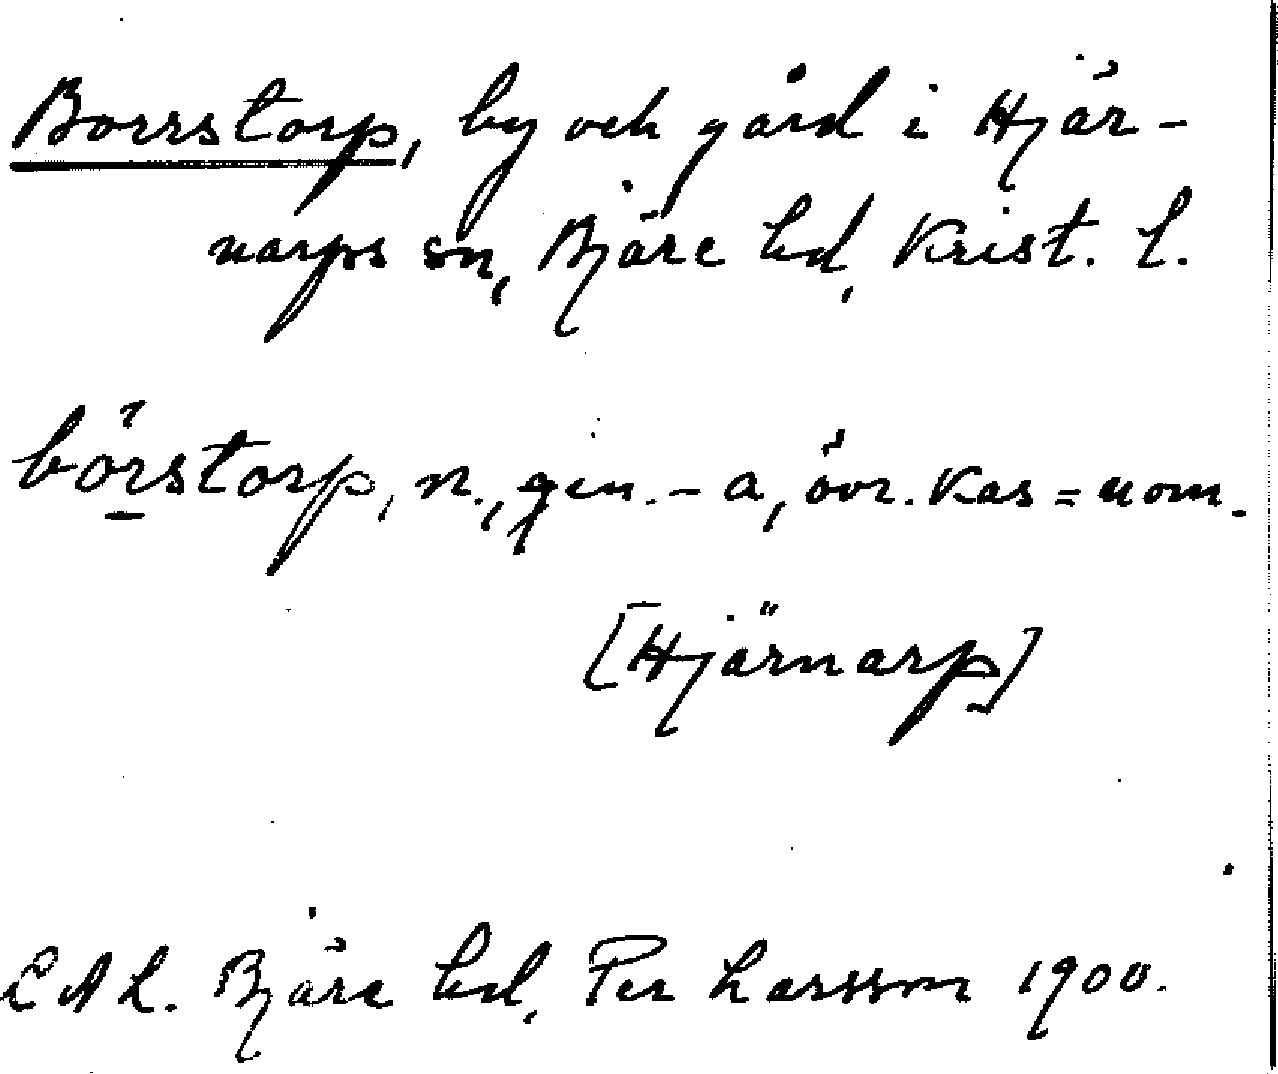 Borrstorp, by och gård i Hjär-
narps sn, Bjäre hd, Krist. l.
börstorp, n., gen. -a, övr. kas = nom.
[Hjärnarp]
LAL. Bjäre hd, Per Larsson 1900.